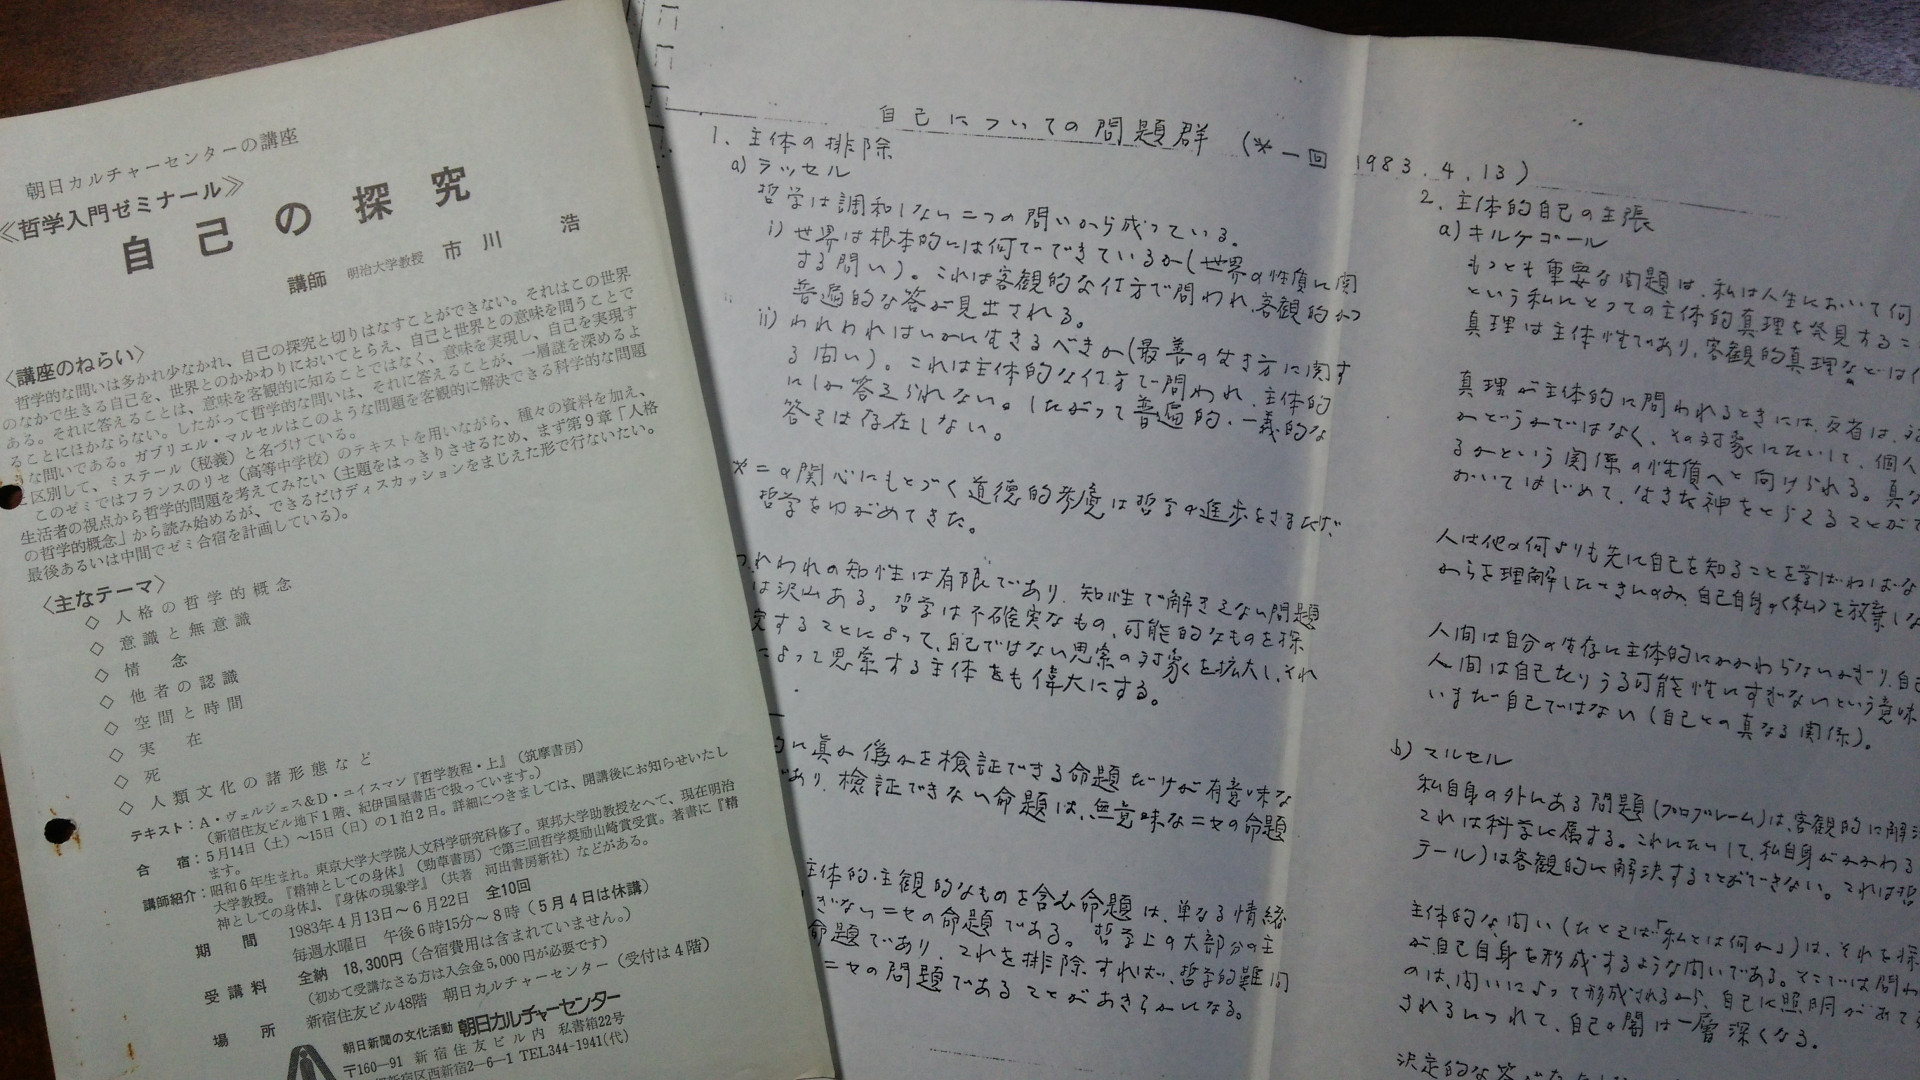 朝日カルチャーセンターの講座
≪哲学入門ゼミナール≫
自己の探究
講師 明治大学教授 市川 浩
〈講座のねらい〉
哲学的な問いは多かれ少なかれ、自己の探究と切りはなすことができない。それはこの世界
のなかで生きる自己を、世界とのかかわりにおいてとらえ、自己と世界との意味を問うことで
ある。それに答えることは、意味を客観的に知ることではなく、意味を実現し、自己を実現す
ることにほかならない。したがって哲学的な問いは、それに答えることが、一層謎を深めるよ
うな問いである。ガブリエル・マルセルはこのような問題を客観的に解決できる科学的な問題
と区別して、ミステール（秘義）と名づけている。
このゼミではフランスのリセ（高等中学校）のテキストを用いながら、種々の資料を加え、
生活者の視点から哲学的問題を考えてみたい（主題をはっきりさせるため、まず第9章「人格
の哲学的概念」から読み始めるが、できるだけディスカッションをまじえた形で行ないたい。
最後あるいは中間でゼミ合宿を計画している）。
〈主なテーマ〉
◇ 人格の哲学的概念
◇ 意識と無意識
◇ 情 念
◇ 他者の認識
◇ 空間と時間
◇ 実 在
◇ 死
◇ 人類文化の諸形態など
テキスト：A・ヴェルジェス＆D・ユイスマン『哲学教程・上』（筑摩書房）
（新宿住友ビル地下1階、紀伊国屋書店で扱っています。）
合 宿：5月14日（土）～15日（日）の1泊2日。詳細につきましては、開講後にお知らせいたし
ます。
講師紹介：昭和6年生まれ。東京大学大学院人文科学研究科修了。東邦大学助教授をへて、現在明治
大学教授。『精神としての身体』（勁草書房）で第三回哲学奨励山崎賞受賞。著書に『精
神としての身体』、『身体の現象学』（共著 河出書房新社）などがある。
期 間 1983年4月13日～6月22日 全10回
毎週水曜日 午後6時15分～8時（5月4日は休講）
受講料 全納 18,300円（合宿費用は含まれていません。）
（初めて受講なさる方は入会金5,000円が必要です）
場 所 新宿住友ビル48階 朝日カルチャーセンター（受付は4階）
朝日新聞の文化活動 朝日カルチャーセンター
〒160-91 新宿住友ビル内 私書箱22号
新宿区西新宿2-6-1 TEL344-1941(代)
自己についての問題群 (*一回 1983.4.13)
1. 主体の排除
a) ラッセル
哲学は調和しない二つの問いから成っている。
i) 世界は根本的には何でできているか(世界の性質に関
する問い)。これは客観的な仕方で問われ、客観的かつ
普遍的な答が見出される。
ii) われわれはいかに生きるべきか(最善の生き方に関す
る問い)。これは主体的な仕方で問われ、主体的
にしか答えられない。したがって普遍的、一義的な
答えは存在しない。
*二の関心にもとづく道徳的考慮は哲学の進歩をさまたげ、
哲学をゆがめてきた。
われわれの知性は有限であり、知性で解きえない問題
は沢山ある。哲学は不確実なもの、可能的なものを探
究することによって、自己ではない思索の対象を拡大し、それ
によって思索する主体をも偉大にする。
的に真か偽かを検証できる命題だけが有意味な
であり、検証できない命題は、無意味なニセの命題
主体的・主観的なものを含む命題は、単なる情緒
ぎないニセの命題である。哲学上の大部分の主
命題であり、これを排除すれば、哲学的難問
ニセの問題であることがあきらかになる。
2. 主体的自己の主張
a) キルケゴール
もっとも重要な問題は、私は人生において何
という私にとっての主体的真理を発見するこ
真理は主体性であり、客観的真理などは
真理が主体的に問われるときには、反省は、
かどうかではなく、その対象にたいして、個人
るかという関係の性質へと向けられる。真
おいてはじめて、生きた神をとらえることがで
人は他の何よりも先に自己を知ることを学ばねばな
からを理解したときにのみ、自己自身の〈私〉を放棄しな
人間は自分の生存に主体的にかかわらないかぎり、自己
人間は自己たりうる可能性にすぎないという意味
いまだ自己ではない(自己との真なる関係)。
b) マルセル
私自身の外にある問題(プロブレーム)は、客観的に解決
これは科学に属する。これにたいして、私自身がかかわる
テール)は客観的に解決することができない。これは哲
主体的な問い(たとえば「私とは何か」)は、それを探
が自己自身を形成するような問いである。そこでは問わ
のは、問いによって形成されるから、自己に照明があて
されるにつれて、自己の闇は一層深くなる。
決定的な答